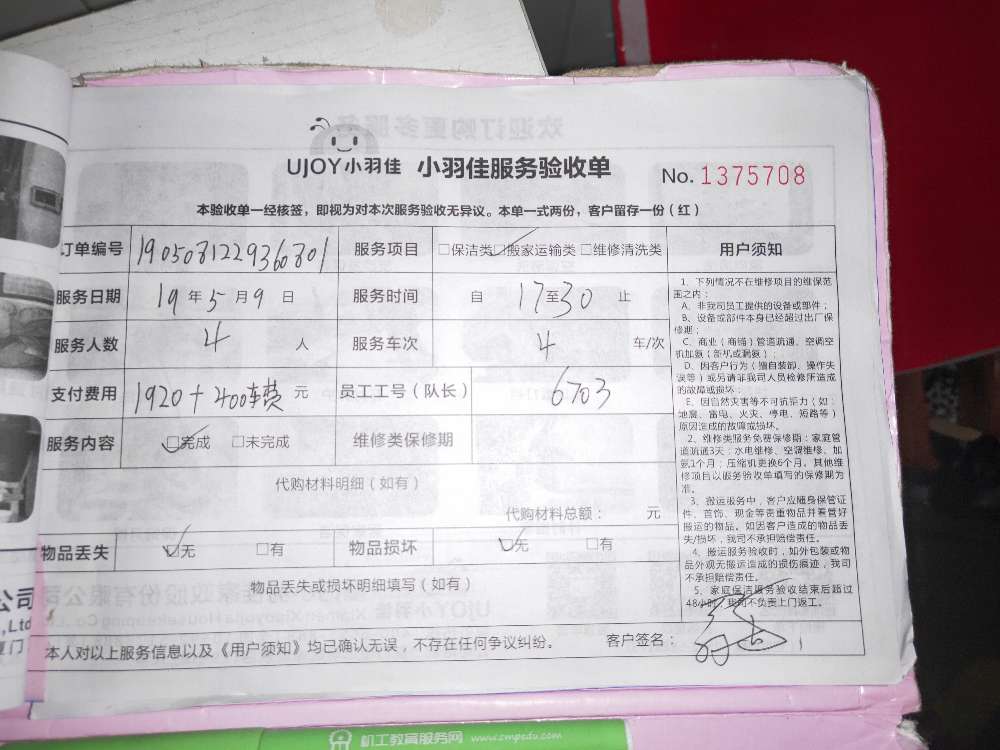 UJOY小羽佳 小羽佳服务验收单 No. 1375708
本验收单一经核签，即视为对本次服务验收无异议。本单一式两份，客户留存一份（红）
订单编号 1905081229360801 服务项目 □保洁类 ☑搬家运输类 □维修清洗类
服务日期 19 年 5 月 9 日 服务时间 自 17 至 30 止
服务人数 4 人 服务车次 4 车/次
支付费用 1920+400车费 元 员工工号（队长） 6703
服务内容 ☑完成 □未完成 维修类保修期
代购材料明细（如有）
代购材料总额： 元
物品丢失 ☑无 □有 物品损坏 ☑无 □有
物品丢失或损坏明细填写（如有）
本人对以上服务信息以及《用户须知》均已确认无误，不存在任何争议纠纷。 客户签名：
用户须知
1、下列情况不在维修项目的维保范
围之内：
A、非我司员工提供的设备或部件；
B、设备或部件本身已经超过出厂保
修期；
C、商业（商铺）管道疏通、空调空
机加氨（新机或漏氨）；
D、因客户行为（擅自装卸、操作失
误等）或另请非我司人员检修所造成
的故障或损坏；
E、因自然灾害等不可抗拒力（如：
地震、雷电、火灾、停电、短路等）
原因造成的故障或损坏。
2、维修类服务免费保修期：家庭管
道疏通3天；水电维修、空调维修、加
氨1个月；压缩机更换6个月。其他维
修项目以服务验收单填写的保修期为
准。
3、搬运服务中，客户应随身保管证
件、首饰、现金等贵重物品并看管好
搬运的物品。如因客户造成的物品丢
失/损坏，我司不承担赔偿责任。
4、搬运服务验收时，如外包装或物
品外观无搬运造成的损伤痕迹，我司
不承担赔偿责任。
5、家庭保洁服务验收结束后超过
48小时，我司不负责上门返工。
公司
,Ltd
厦门
机工教育服务网 www.cmpedu.com